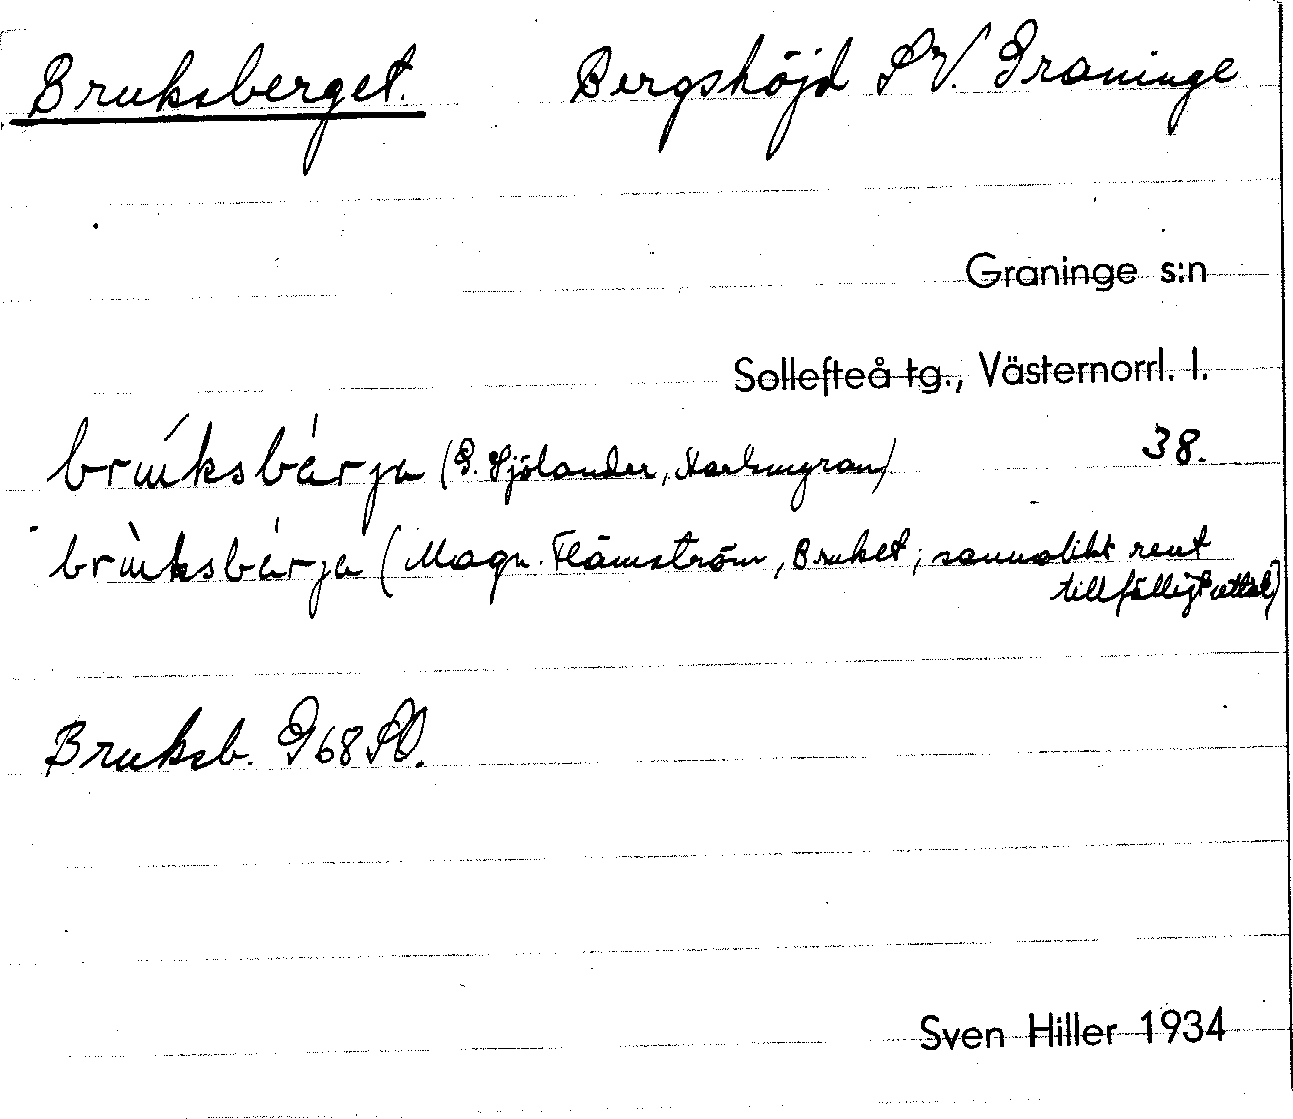 Bruksberget. Bergshöjd SV. Graninge
Graninge s:n
Sollefteå tg., Västernorrl. l.
brúksbárja (G. Hjölander,
38.
brùksbárja (Magn. Flämström, Bruket; sannolikt rent
tillfälligt uttal)
Bruksb. G68SO.
Sven Hiller 1934